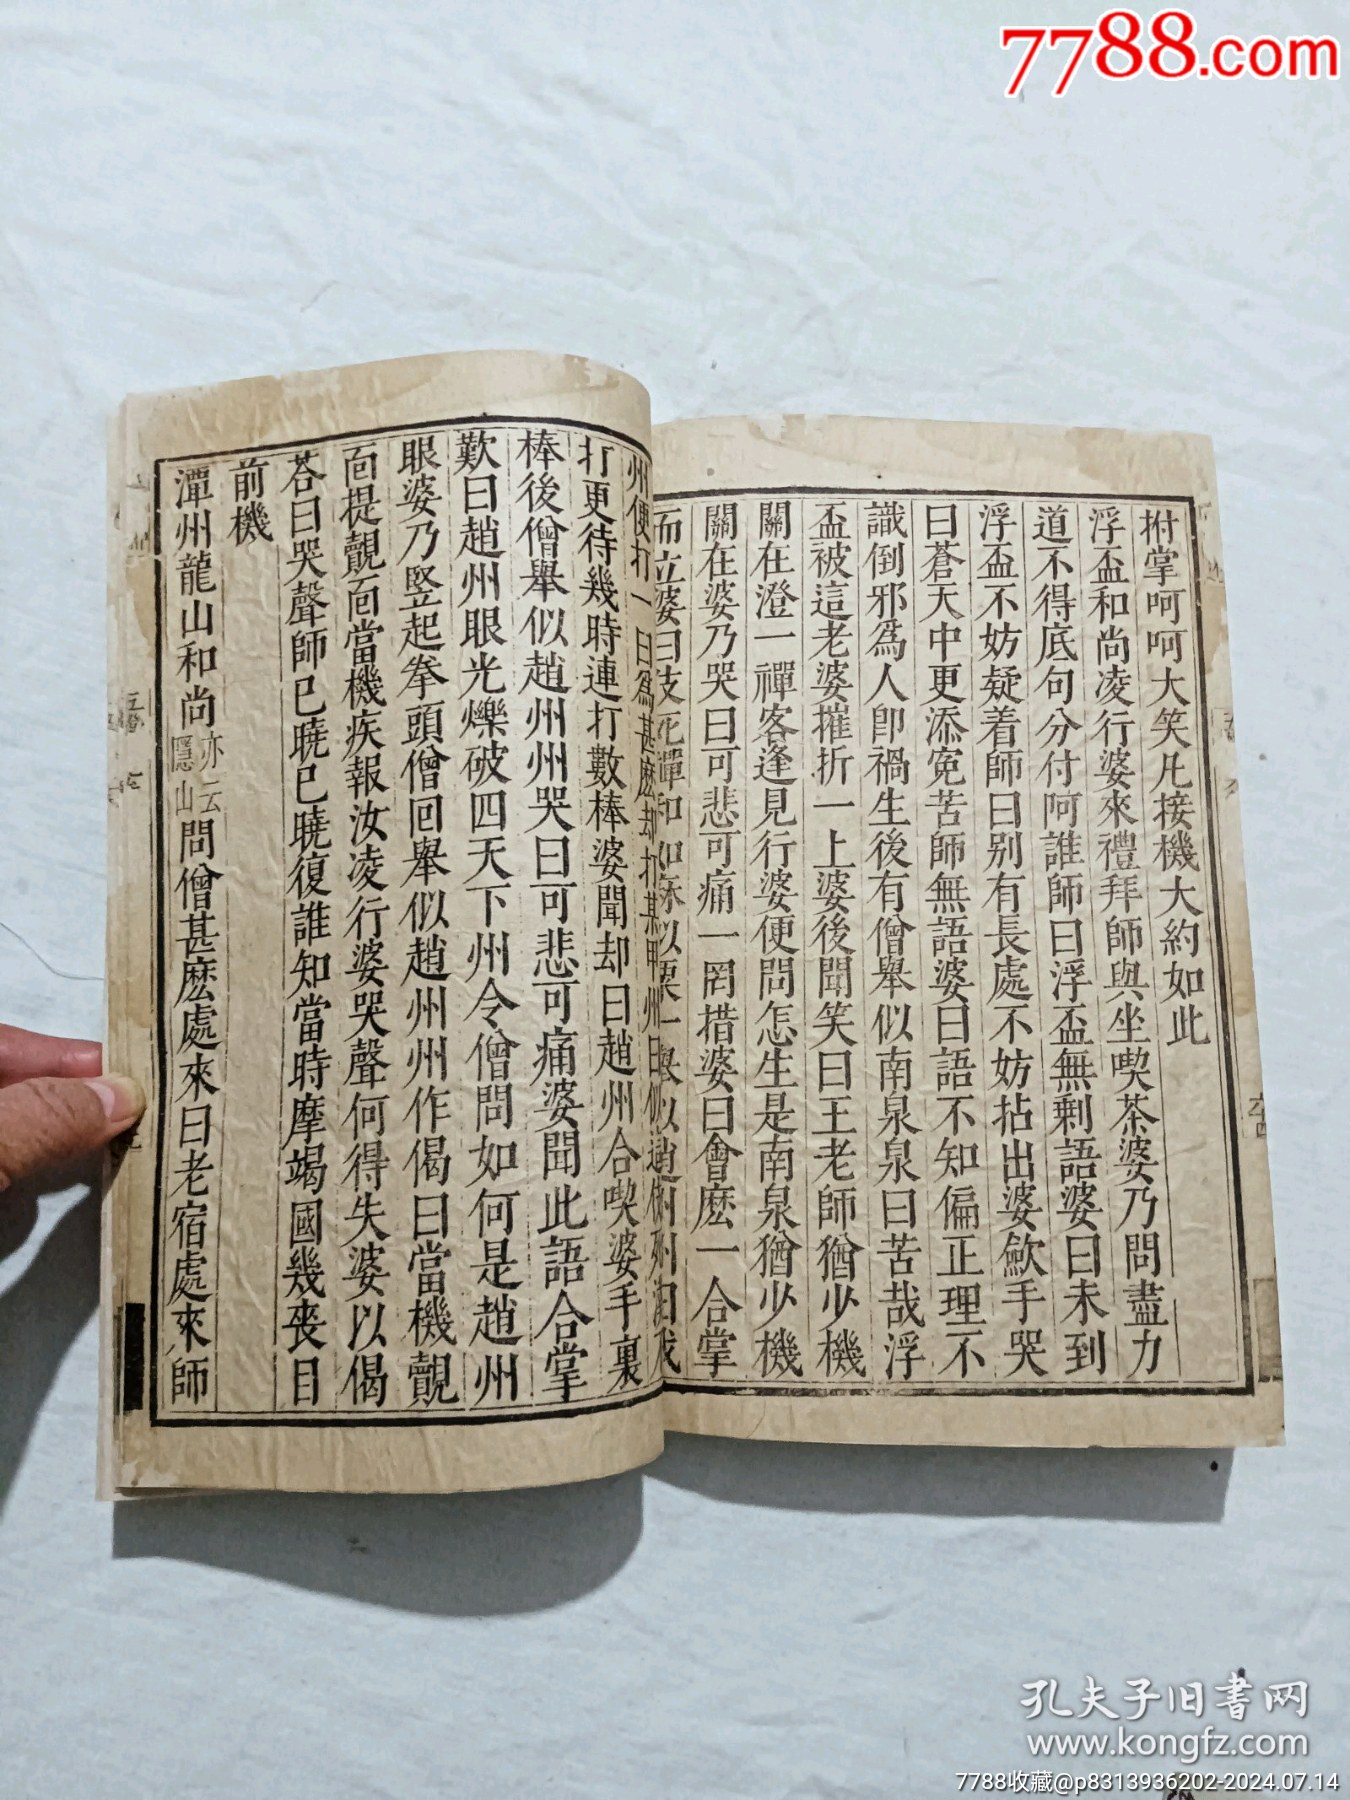 7788.com
拊掌呵呵大笑凡接機大約如此
浮盃和尚凌行婆來禮拜師與坐喫茶婆乃問盡力
道不得底句分付阿誰師曰浮盃無剩語婆曰未到
浮盃不妨疑着師曰别有長處不妨拈出婆歛手哭
曰蒼天中更添冤苦師無語婆曰語不知偏正理不
識倒邪爲人卽禍生後有僧舉似南泉泉曰苦哉浮
盃被這老婆摧折一上婆後聞笑曰王老師猶少機
關在澄一禪客逢見行婆便問怎生是南泉猶少機
關在婆乃哭曰可悲可痛一罔措婆曰會麽一合掌
而立婆曰伎死禪和如麻似粟一舉似趙州州曰我
州便打一曰爲甚麽却打某甲州曰似
打更待幾時連打數棒婆聞却曰趙州合喫婆手裏
棒後僧舉似趙州州哭曰可悲可痛婆聞此語合掌
歎曰趙州眼光爍破四天下州令僧問如何是趙州
眼婆乃竪起拳頭僧回舉似趙州州作偈曰當機覿
面提覿面當機疾報汝凌行婆哭聲何得失婆以偈
荅曰哭聲師已曉已曉復誰知當時摩竭國幾喪目
前機
潭州龍山和尚亦云隱山問僧甚麽處來曰老宿處來師
孔夫子旧書网
www.kongfz.com
7788收藏@p8313936202-2024.07.14